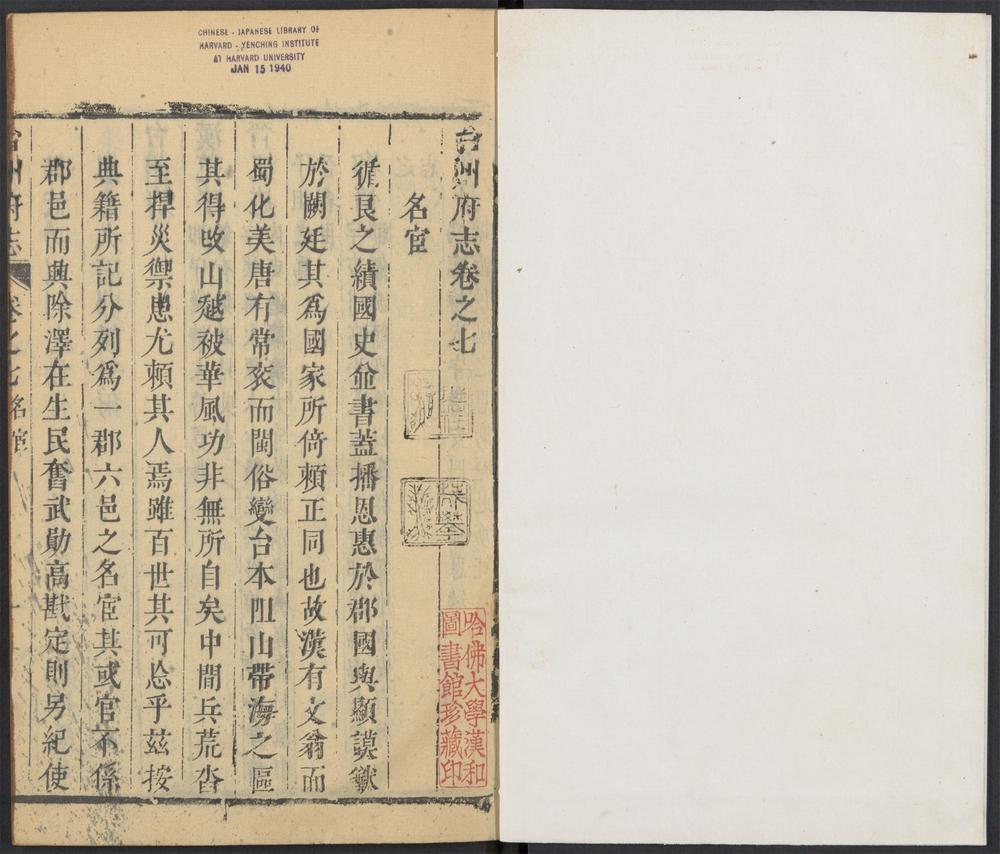 CHINESE - JAPANESE LIBRARY OF
HARVARD - YENCHING INSTITUTE
AT HARVARD UNIVERSITY
JAN 15 1940
台州府志卷之七
名宦
循良之績國史並書蓋播恩惠於郡國與顯謨猷
於闕廷其爲國家所倚頼正同也故漢有文翁而
蜀化美唐有常袞而閩俗變台本阻山帶海之區
其得改山越被華風功非無所自矣中間兵荒沓
至捍災禦患尤頼其人焉雖百世其可忘乎茲按
典籍所記分列爲一郡六邑之名宦其或官不係
郡邑而興除澤在生民奮武勛高戡定則另紀使
台州府志
卷之七名宦
哈佛大學漢和
圖書館珍藏印